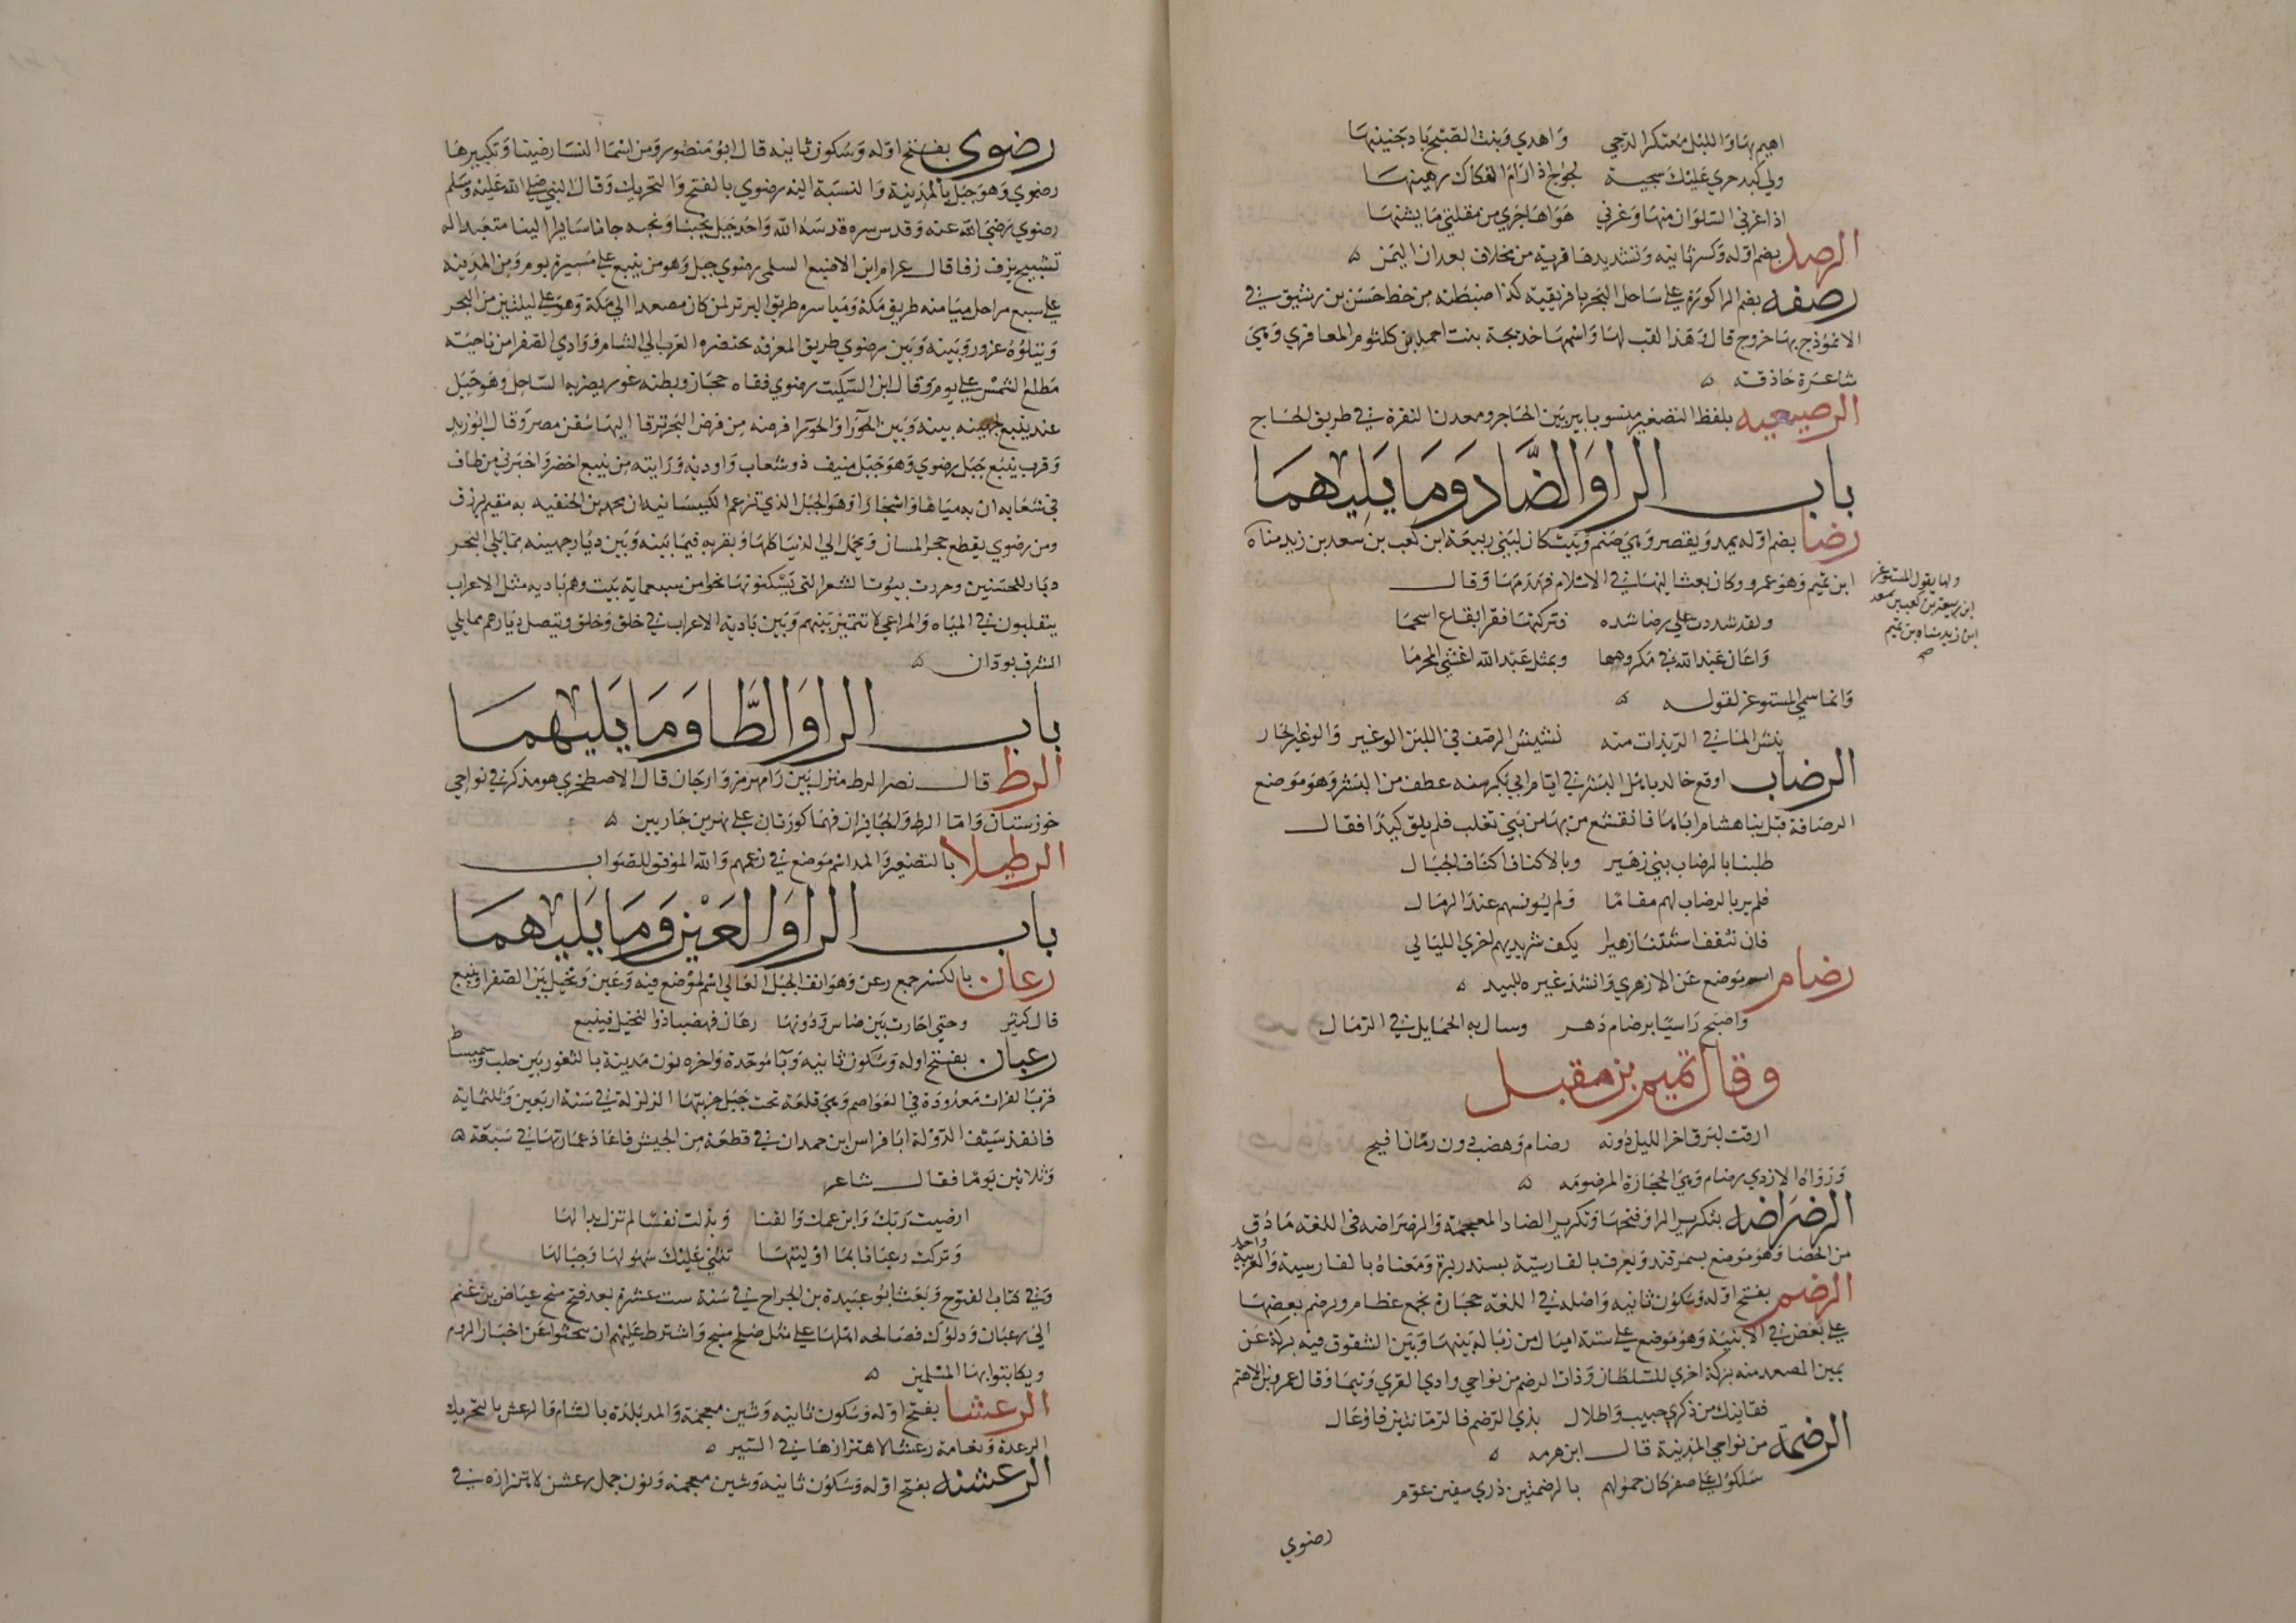 اهيم بها والليل معتكر الدجي وأهدي وبنت الصبح باد جنينها
ولي كبد حري عليك سجية لجوج اذا رام الفكاك رهينها
اذا غرني السلوان منها وغرني هواها جري من مقلتي ما يشنها
الرصد بضم اوله وكسر ثانيه وتشديدها قرية من مخلاف بعدان اليمن ه
رصفه بضم الرا كورة علي ساحل البحر بافريقية كذا ضبطته من خط حسن بن رشيق في
الانموذج بها خروج قال وهذا لقب لها واسمها خديجة بنت احمد بن كلثوم المعافري وهي
شاعرة حاذقة ه
الرصيعيه بلفظ التصغير منسوبا بير بين الحاجر ومعدن النقرة في طريق الحاج
باب الرا والضاد وما يليهما
رضا بضم اوله يمد ويقصر وهي صنم وبيت كان لبني ربيعة ابن كعب بن سعد بن زيد مناة
ابن تميم وهو عمرو وكان بعث اليها في الاسلام فهدمها وقال
ولها يقول المستوغر
ابن ربيعة بن كعب بن سعد
ابن زيد مناه بن تميم
صح
ولقد شددت علي رضا شده فتركتها فقرا بقاع اسحما
واعان عبد الله في مكروهها وبمثل عبد الله اغشي المحرما
وانما سمي المستوغر لقوله ه
ينش الما في الربذات منه نشيش الرصف في اللبن الوغير والوغير الحار
الرضاب اوقع خالد باهل البشر في ايام ابي بكر سنه عطف من البشر وهو موضع
الرصافة قبل بنا هشام اياها فانقشع من بها من بني تغلب فلم يلق كيدا فقال
طلبنا بالرضاب بني زهير وبالاكناف اكناف الجبال
فلم يربا لرضاب لهم مقاما ولم يونسهم عند الرمال
فان تثقف اسنتنا زهيرا يكف شريدهم اخري الليالي
رضام اسم موضع عن الازهري وانشد غيره للبيد ه
واصبح راسيا برضام دهر وسال به الخمايل في الرمال
وقال تميم بن مقبل
ارقت لبرق اخر الليل دونه رضام وهضب دون رمان افيح
ورواه الازدي رضام وهي الحجارة المرضومه ه
الرضراضه بتكرير الرا وفتحها وتكرير الضاد المعجمة والرضراضه في اللغه ما دق
من الحصا وهو موضع بسمرقند ويعرف بالفارسية بسندريزة ومعناه بالفارسية والعربية واحد
الرضم بفتح اوله وسكون ثانيه واصله في اللغه حجارة تجمع عظام ويرضم بعضها
علي بعض في الابنية وهو موضع علي ستة اميال من زباله بينها وبين الشقوق فيه بركة عن
يمين المصعد منه بركة اخري للسلطان وذات الرضم من نواحي وادي القري وتيما وقال عمرو بن الاهتم
قفا نبك من ذكري حبيب واطلال بذي الرضم فالرمانتين فاوعال
الرضمة من نواحي المدينة قال ابن هرمه ه
سلكوا علي صفر كان حمولهم بالرضمتين ذري سفين عوم
رضوي
رضوي بفتح اوله وسكون ثانيه قال ابو منصور ومن اسما النسا رضيا وتكبيرها
رضوي وهو جبل بالمدينة والنسبة اليه رضوي بالفتح والتحريك وقال النبي صلي الله عليه وسلم
رضوي رضي الله عنه وقدس سره قدسه الله واحد جبل يحبنا ونحبه جانا سايرا الينا متعبدا له
تسبيح يزف زفا قال عرام ابن الاصبع السلمي رضوي جبل وهو من ينبع علي مسيرة يوم ومن المدينه
علي سبع مراحل ميامنه طريق مكة ومياسره طريق البر تر لمن كان مصعدا الي مكة وهو علي ليلتين من البحر
ويتلوه عزور وبينه وبين رضوي طريق المعرفه تختصره العرب الي الشام ووادي الصفرا من ناحية
مطلع الشمس علي يوم وقال ابن السكيت رضوي قفاه حجاز وبطنه غور يضربه الساحل وهو جبل
عند ينبع لجهينه بينه وبين الحورا والحورا فرضه من فرض البحر ترقا اليها سفن مصر وقال ابو زيد
وقرب ينبع جبل رضوي وهو جبل منيف ذو شعاب واوديه ورايته من ينبع اخضر واخبرني من طاف
في شعابه ان به مياها واشجارا وهو الجبل الذي تزعم الكيسانيه ان محمد بن الحنفيه به مقيم يرزق
ومن رضوي يقطع حجر المسان ويحمل الي الدنيا كلها وبقربه فيما بينه وبين ديار جهينه مما يلي البحر
ديار للحسنين وحررت بيوتا لشعر التي يسكنونها نحوا من سبعماية بيت وهم باديه مثل الاعراب
ينتقلون في المياه والمراعي لا تتميز بينهم وبين بادية الاعراب في خلق وخلق وتتصل ديارهم مما يلي
الشرق بودان ه
باب الرا والطا وما يليهما
الرط قال نصر الرط منزل بين رامهرمز وارجان قال الاصطخري هو مذكر في نواحي
خوزستان واما الرط والخابران فهما كورتان علي نهرين جاريين ه
الرطيلا بالتصغير والمد اسم موضع في زعمهم والله الموفق للصواب
باب الرا والعين وما يليهما
رعان بالكسر جمع رعن وهو انف الجبل العالي اسم لموضع فيه وعين ونخيل بين الصفرا وينبع
قال كثير وحتي اجازت بين ضاس ودونها رعان فهضبا ذو النخيل فينبع
رعبان بفتح اوله وسكون ثانيه وبا موحدة واخره نون مدينة بالثغور بين حلب وسميساط
قرب الفرات معدودة في العواصم وهي قلعة تحت جبل خربتها الزلزلة في سنة اربعين وثلثماية
فانفذ سيف الدولة ابا فراس ابن حمدان في قطعة من الجيش فاعاد عمارتها في سبعة ه
وثلاثين يوما فقال شاعر
ارضيت ربك وابن عمك والقنا وبذلت نفسا لم تزل بدالها
وتركت رعبانا بما اوليتها تثني عليك سهولها وجبالها
وفي كتاب الفتوح وبعث ابو عبيدة بن الجراح في سنة ست عشرة بعد فتح منبج عياض بن غنم
الي رعبان ودلوك فصالحه اهلها علي مثل صلح منبج واشترط عليهم ان يبحثوا عن اخبار الروم
ويكاتبوا بها المسلمين ه
الرعشا بفتح اوله وسكون ثانيه وشين معجمة والمد بلدة بالشام والرعش بالتحريك
الرعدة ونعامة رعشا لاهتزازها في السير ه
الرعشنه بفتح اوله وسكون ثانيه وشين معجمة ونون جمل رعشن لاهتزازه في